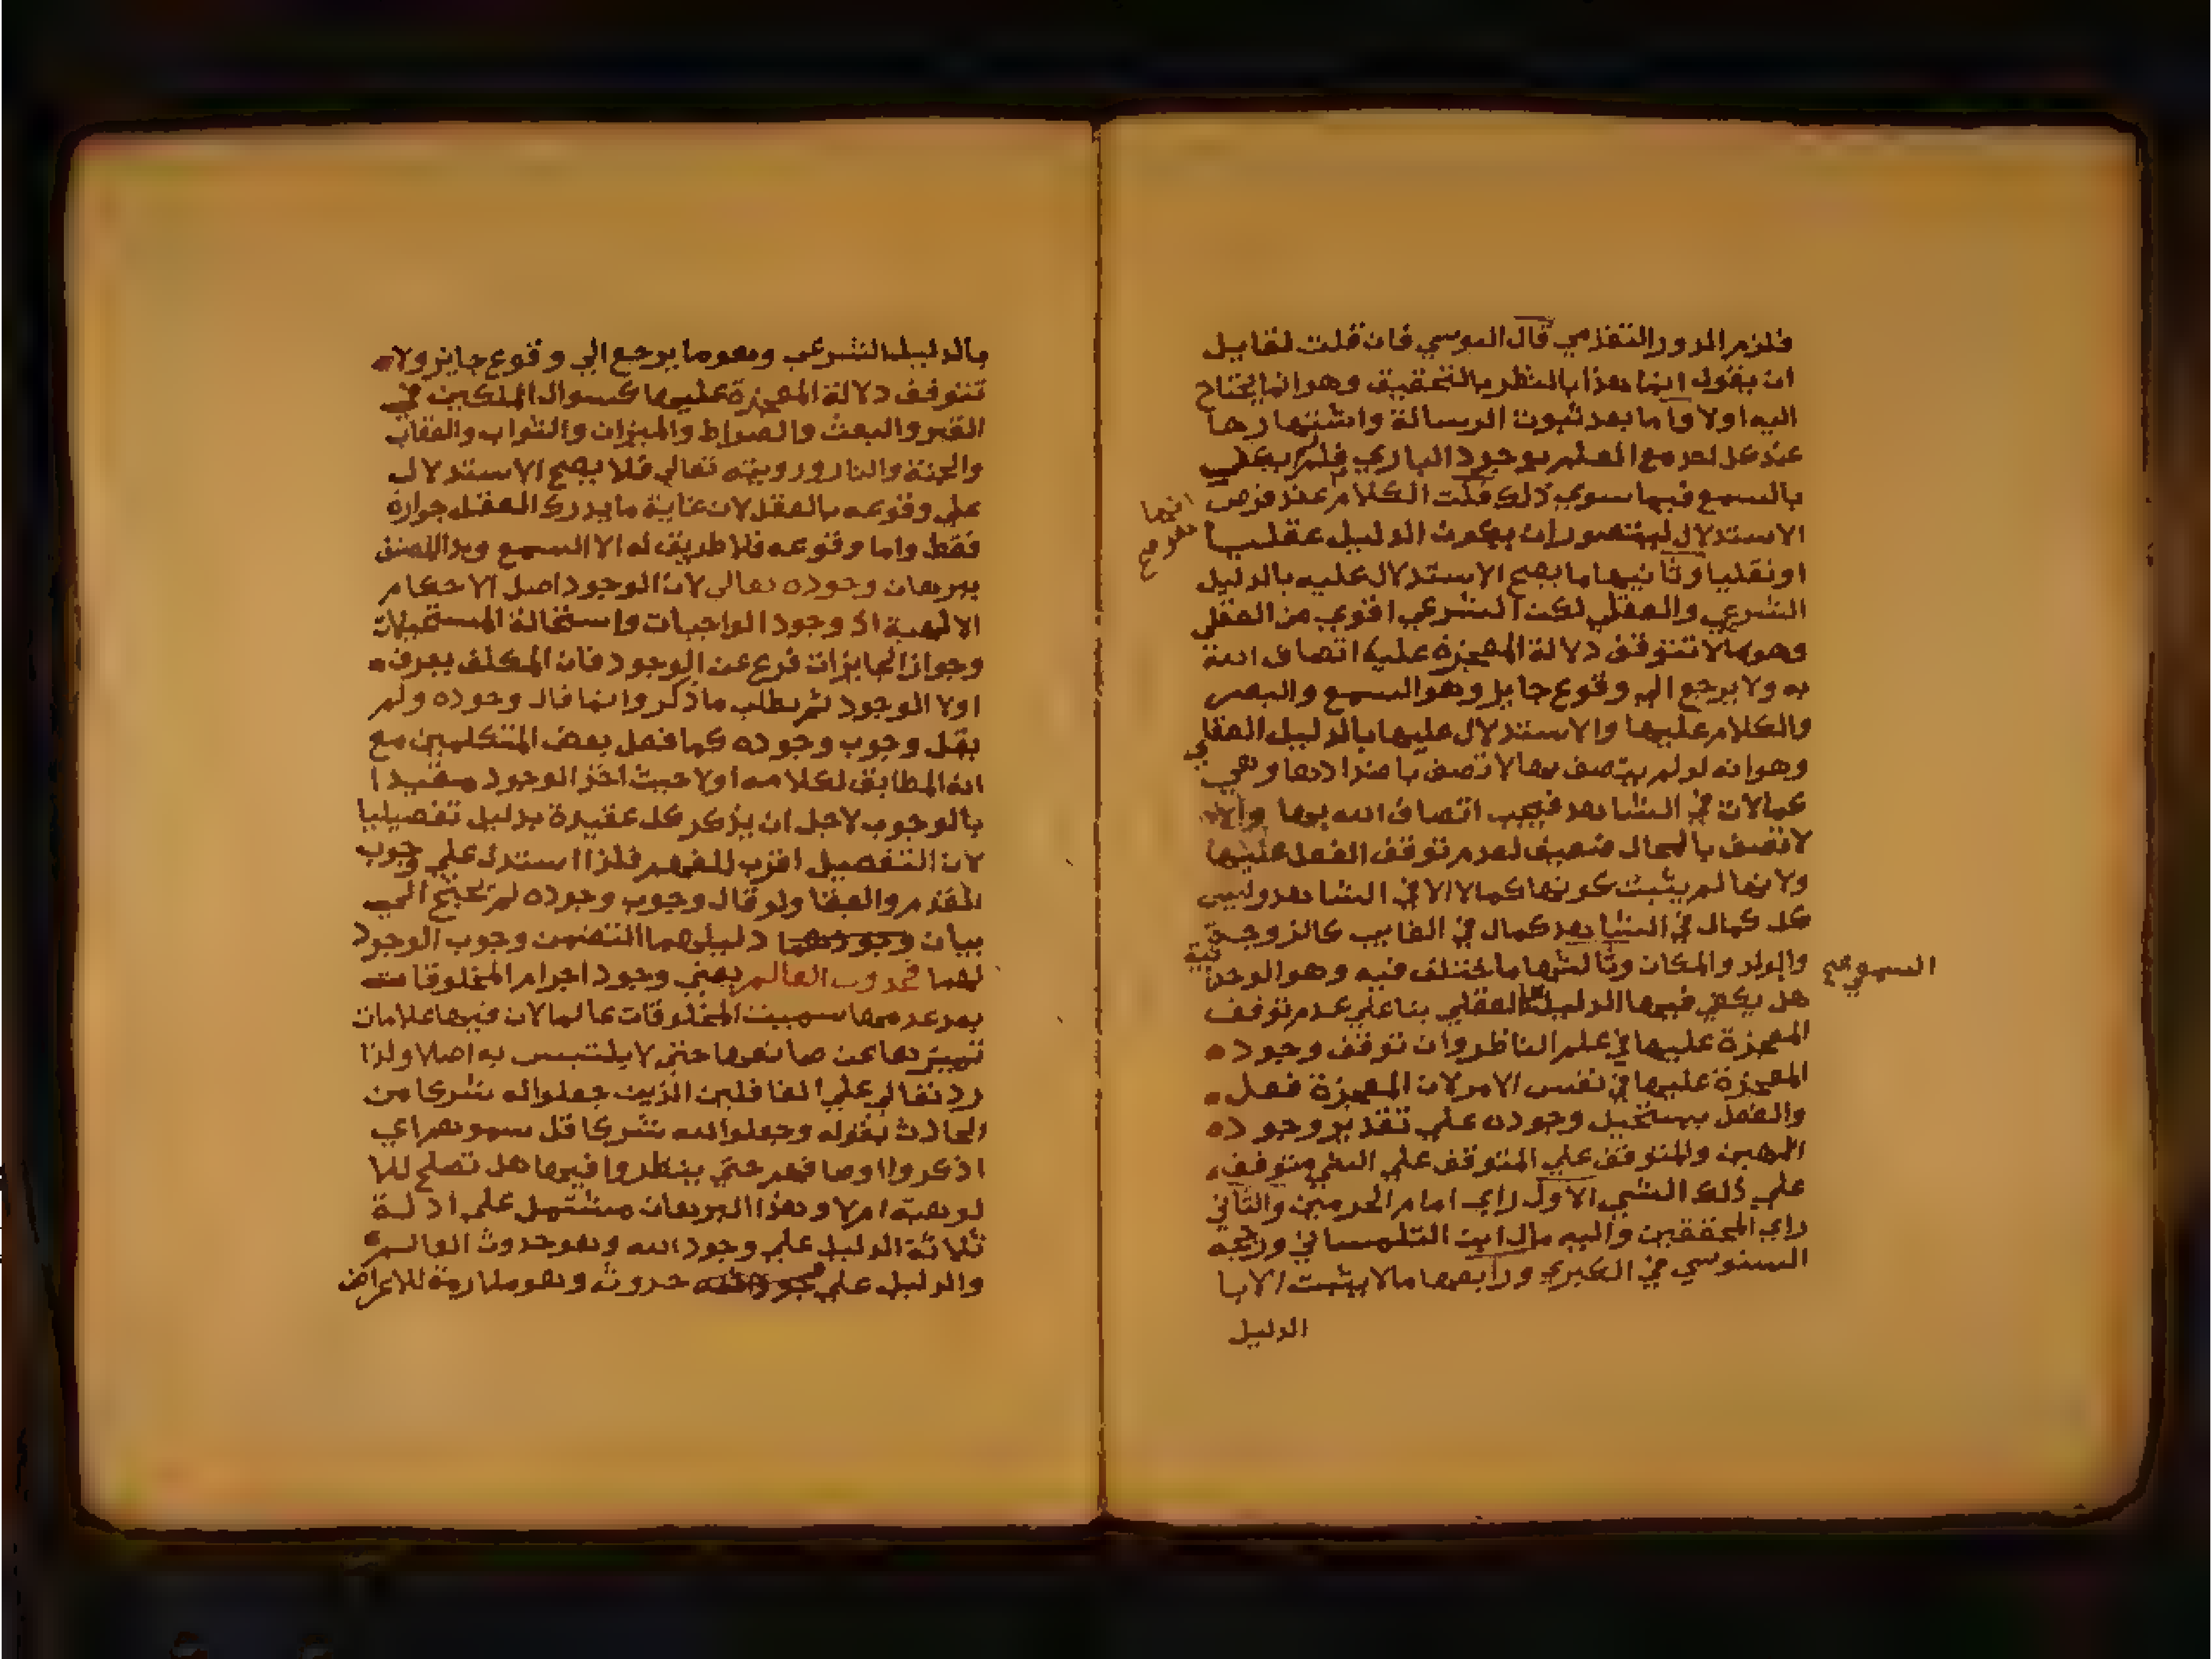 فلزم الدور التقدمي قال اليوسي فان قلت لقايل
ان يقول انما هذا بالنظر بالتحقيق وهو انما يحتاج
اليه اولا واما بعد ثبوت الرسالة واشتهارها
عند كل احد مع العلم بوجود الباري فلم لا يكفي
بالسمع فيما سوي ذلك قلت الكلام عند فرض
الاستدلال ليتصور ان يكون الدليل عقليا
انما
او نقليا وثانيها ما يصح الاستدلال عليه بالدليل
الشرعي والعقلي لكن الشرعي اقوي من العقلي
وهو ما لا تتوقف دلالة المعجزة عليه اتصاف الله
به ولا يرجع الي وقوع جايز وهو السمع والبصر
والكلام عليها والاستدلال عليها بالدليل العقلي
وهو انه لو لم يتصف بها لاتصف باضدادها وهي
كمالات في الشاهد فيجب اتصاف الله بها والا
لاتصف بالمحال ضعيف لعدم توقف الفعل عليها
ولانها لم يثبت كونها كمالا الا في الشاهد وليس
كل كمال في الشاهد كمال في الغايب كالزوجة
والولد والمكان وثالثها ما اختلف فيه وهو الوحدانية
هل يكفي فيها الدليل العقلي بنا علي عدم توقف
السمعي صح
المعجزة عليها في علم الناظر وان توقف وجود
المعجزة عليها في نفس الامر لان المعجزة فعل
والفعل يستحيل وجوده علي تقدير وجود
الهين والمتوقف علي المتوقف علي الشي متوقف
علي ذلك الشي الاول راي امام الحرمين والثاني
راي المحققين واليه مال ابن التلمساني ورجحه
السنوسي في الكبري ورابعها ما لا يثبت الا با
الدليل
بالدليل الشرعي وهو ما يرجع الي وقوع جايز ولا
تتوقف دلالة المعجزة عليها كسوال الملكين في
القبر والبعث والصراط والميزان والثواب والعقاب
والجنة والنار ورويته تعالي فلا يصح الاستدلال
علي وقوعه بالعقل لان غاية ما يدرك العقل جوازه
فقط واما وقوعه فلا طريق له الا السمع وبدا المصنف
ببرهان وجوده تعالي لان الوجود اصل الاحكام
الالهية اذ وجود الواجبات واستحالة المستحيلات
وجواز الجايزات فرع عن الوجود فان المكلف يعرف
اولا الوجود ثم يطلب ما ذكر وانما قال وجوده ولم
يقل وجوب وجوده كما فعل بعض المتكلمين مع
انه المطابق لكلامه اولا حيث اخذ الوجود مقيدا
بالوجوب لاجل ان يذكر كل عقيدة بدليل تفصيليا
لان التفصيل اقرب للفهم فلذا استدل علي وجوب
القدم والبقا ولو قال وجوب وجوده لم يحتج الي
بيان وجودهما دليلهما التضمن وجوب الوجود
لهما فحدوث العالم يعني وجود اجرام المخلوقات
بعد عدمها سميت المخلوقات عالما لان فيها علامات
تميزها عن صانعها حتي لا يلتبس به اصلا ولذا
رد تعالي علي الغافلين الذين جعلوا له شركا من
الحادث بقوله وجعلوا لله شركا قل سموهم اي
اذكروا اوصافهم حتي ينظروا فيها هل تصلح للا
لوهية ام لا وهذا البرهان مشتمل علي ادلة
ثلاثة الدليل علي وجود الله وهو حدوث العالم
والدليل علي حدوث وهو ملازمة للاعراض